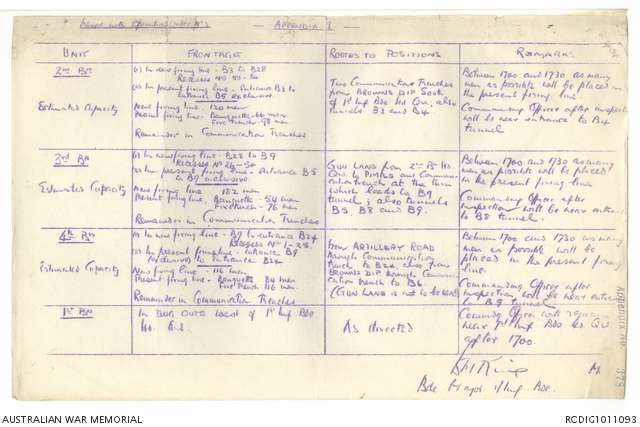 Issued with Operation Order No 3 — APPENDIX 1 —
UNIT FRONTAGE ROUTES TO POSITIONS REMARKS
2nd Bn
Estimated Capacity
(1) In new firing line - B3 to B28
Recesses No
(2) In present firing line - entrance B3 to
entrance B5 exclusive
New firing line - 120 men
Present firing line - Banquette - 66 men
Fire Trench - 98 men
Remainder in Communication Trenches
Two Communication Trenches
from BROWNS DIP South
of 1st Inf Bde Hd Qrs, also
tunnels B3 and B4
Between 1700 and 1730 as many
men as possible will be placed in
the present firing line.
Commanding Officer after inspection
will be near entrance to B4
tunnel
3rd Bn
Estimated Capacity
(1) In new firing line - B28 to B9
Recesses No
(2) In present firing line - entrance B5
to B9 inclusive
New firing line 152 men
Present firing line, Banquette - 54 men
Fire trench - 76 men
Remainder in Communication Trenches
GUN LANE from 2nd Bn Hd.
Qrs. to PIMPLE and Communi-
cation trench at the turn
which leads to B9
tunnel; also tunnels
B5 B8 and B9.
Between 1700 and 1730 as many
men as possible will be placed
in the present firing line
Commanding Officer after
inspection will be near entrance
to B8 tunnel.
4th Bn
Estimated Capacity
(1) In new firing line - B9 to entrance B24
Recesses No 1-25.
(2) In present firing line - entrance B9
(exclusive) to entrance B24
New firing line - 116 men
Present firing line - Banquette 84 men
Fire trench 116 men
Remainder in Communication Trenches
From ARTILLERY ROAD
through Communication
trench to B24 also from
BROWNS DIP through Communi-
cation trench to B6.
(GUN LANE is not to be used)
Between 1700 and 1730 as
many men as possible will be
placed in the present firing
line.
Commanding Officer after
inspection will be near entrance
to B9 tunnel
1st Bn
In DUG OUTS west of 1st Inf Bde
Hd. Qrs.
As directed
Commdg Officer will
near 1st Inf Bde Hd. Qrs
after 1700.
King M.
Bde Major 1/Inf Bde.
Appendix No 378
AUSTRALIAN WAR MEMORIAL
RCDIG1011093